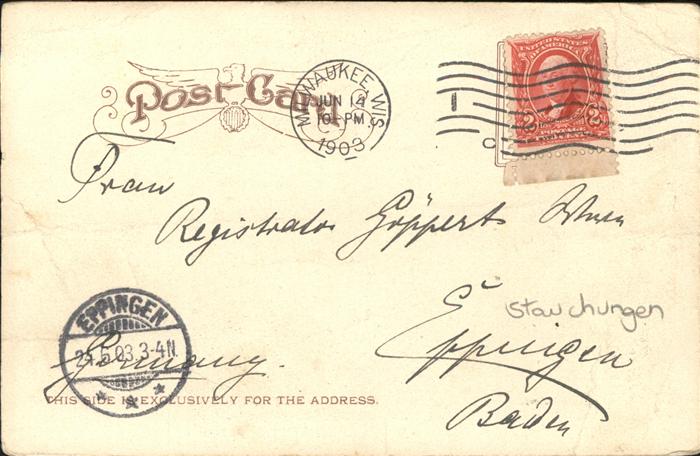 Post Card
MILWAUKEE, WIS.
JUN 14
10-PM
1903
1
C
UNITED STATES
OF AMERICA
2 2
Frau
Registrator Göppert Wwe
Eppingen
Baden
Germany.
stauchungen
EPPINGEN
24.6.03.3-4N.
THIS SIDE IS EXCLUSIVELY FOR THE ADDRESS.